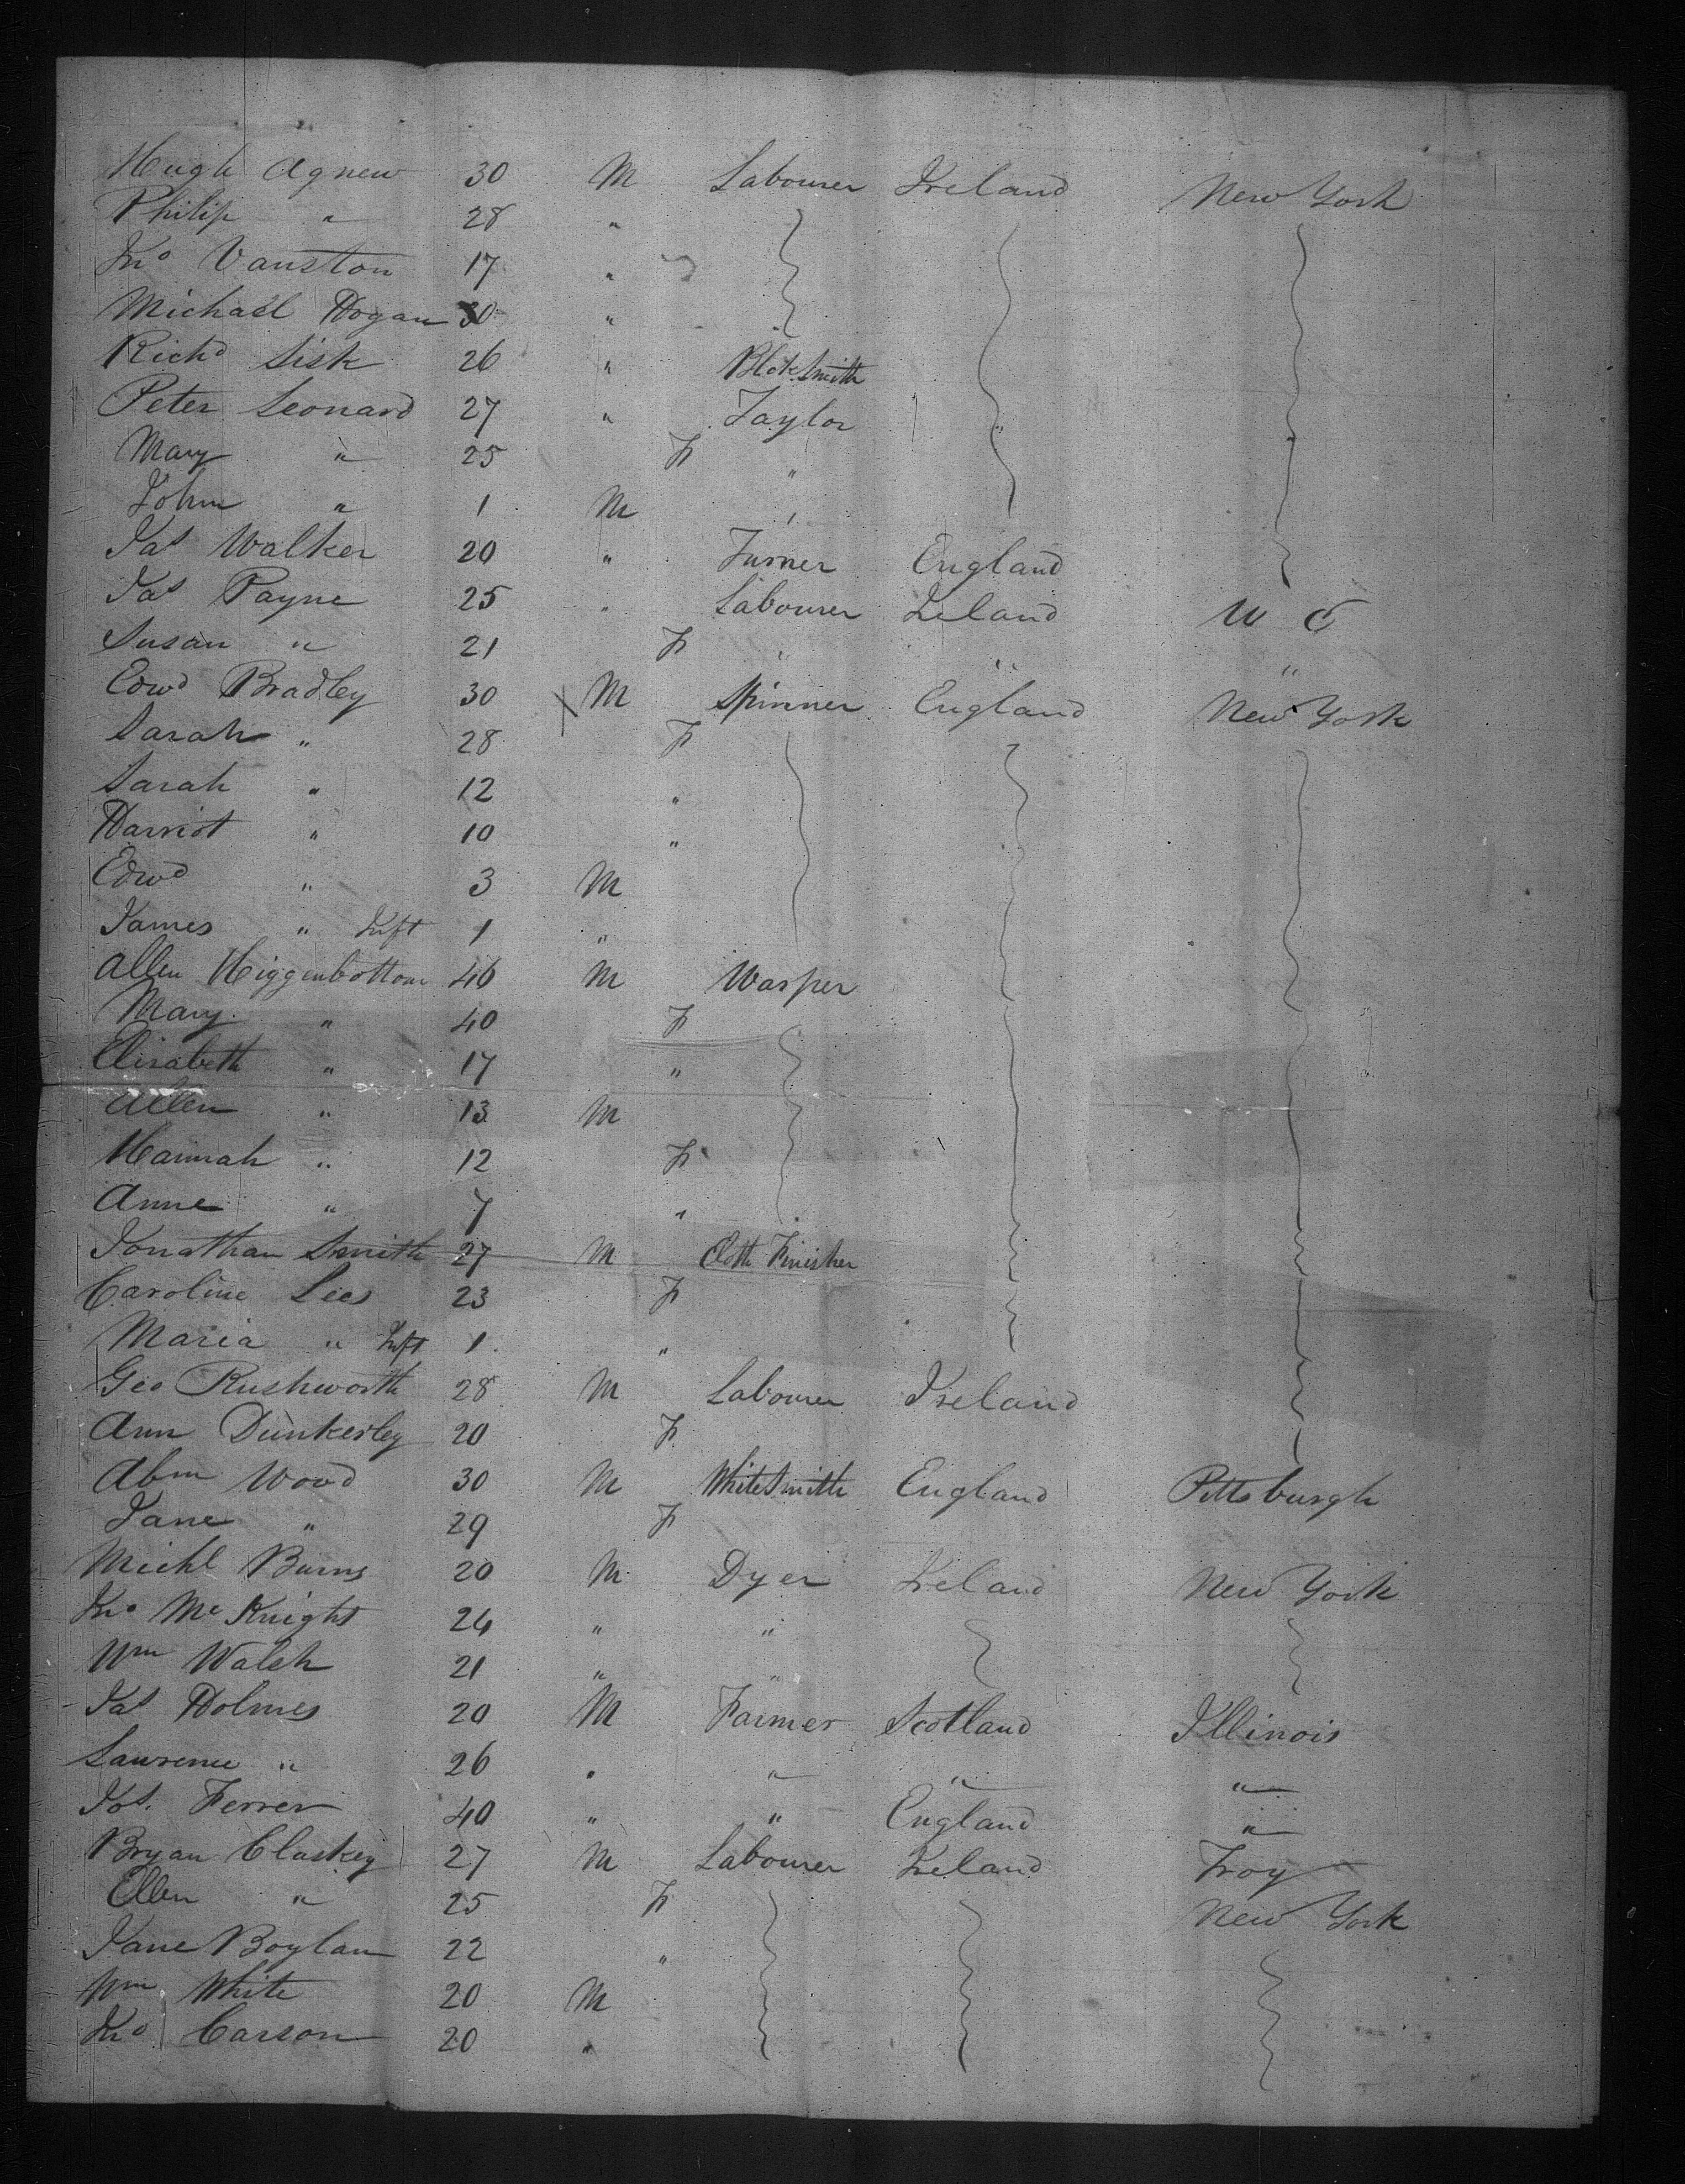 Hugh Agnew 30 M Labourer Ireland New York
Philip " 28 "
Jno Vanston 17 "
Michael Hogan 30 "
Richd Sisk 26 " BlckSmith
Peter Leonard 27 " Taylor
Mary " 25 F "
John " 1 M "
Jas Walker 20 " Turner England
Jas Payne 25 " Labourer Ireland U C
Susan " 21 F " " "
Edwd Bradley 30 M Spinner England New York
Sarah " 28 F
Sarah " 12 "
Harriot " 10 "
Edwd " 3 M
James " Inft 1 "
Allen Higgenbottom 46 M Warper
Mary " 40 F
Elisabeth " 17 "
Allen " 13 M
Hannah " 12 F
Anne " 7 "
Jonathan Smith 27 M Cloth Finisher
Caroline Lees 23 F
Maria " Inft 1 "
Geo Rushworth 28 M Labourer Ireland
Ann Dunkerley 20 F
Abm Wood 30 M WhiteSmith England Pittsburgh
Jane " 29 F
Michl Burns 20 M Dyer Ireland New York
Jno Mc Knight 24 " "
Wm Walsh 21 " "
Jas Holmes 20 M Farmer Scotland Illinois
Lawrence " 26 " " " "
Jos. Ferrer 40 " " England "
Bryan Claskey 27 M Labourer Ireland Troy
Ellen " 25 F New York
Jane Boylan 22 "
Wm White 20 M
Jno Carson 20 "